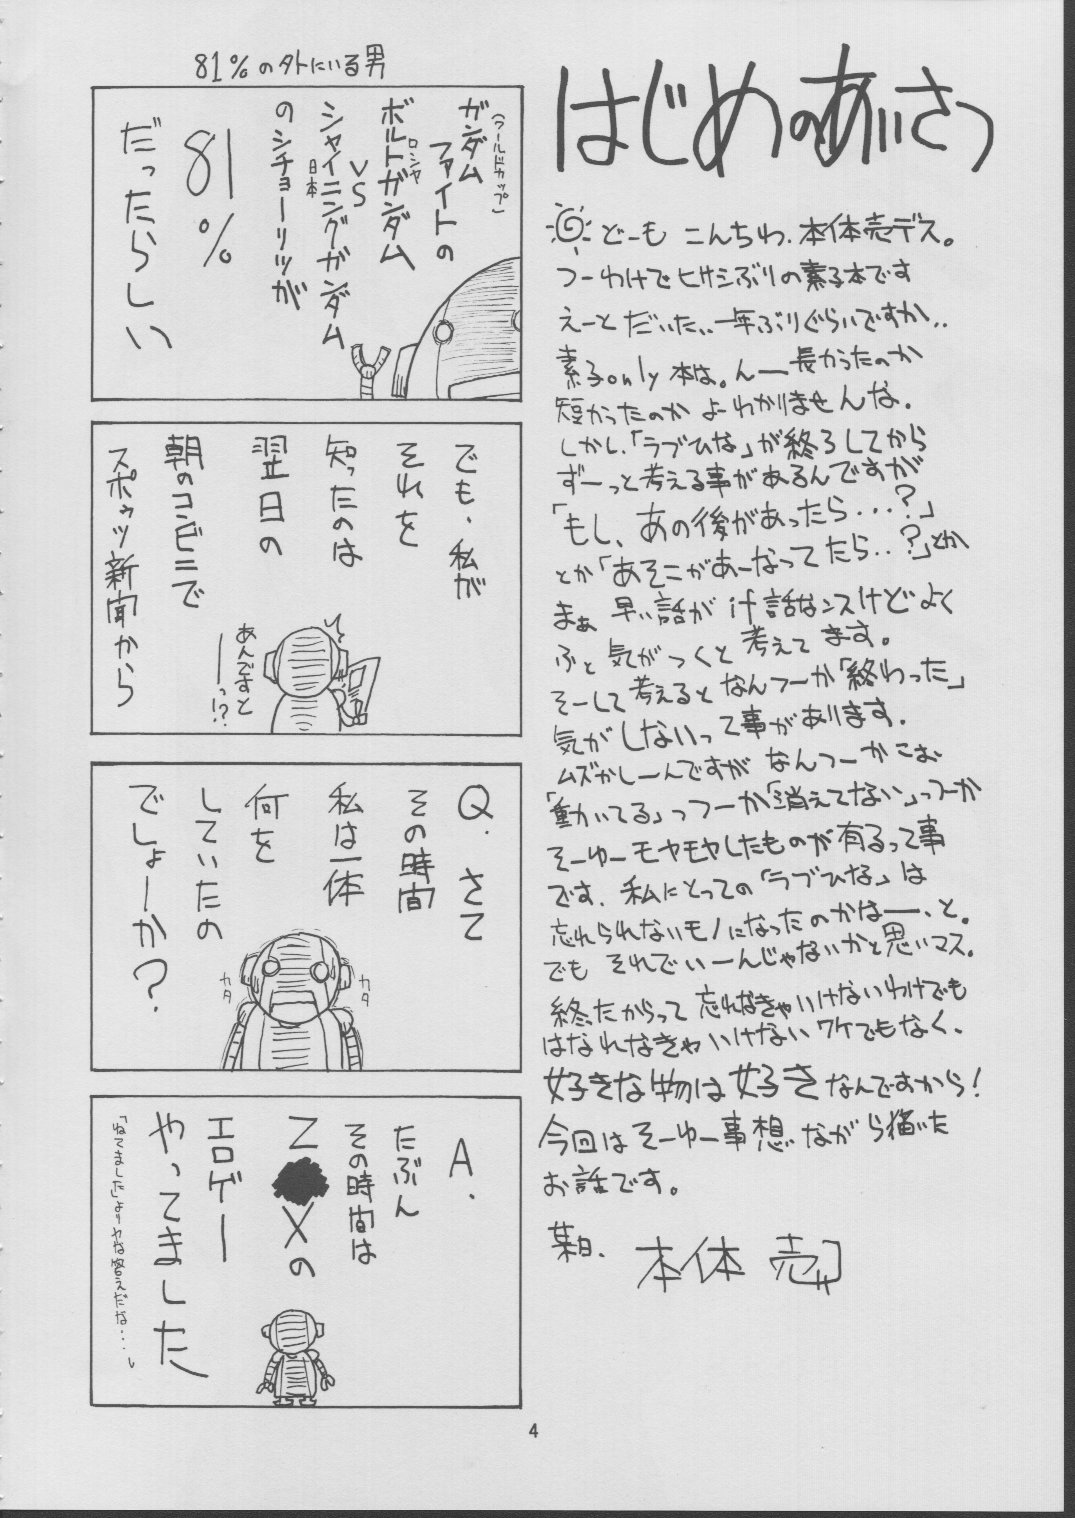 はじめのあいさつ
どーも こんちわ、本体売デス。
つーわけでヒサシぶりの素子本です
えーと だいたい、一年ぶりぐらいですか、、
素子only 本は。んー長かったのか
短かったのか よーわかりませんな。
しかし、「ラブひな」が終ろしてから
ずーっと考える事があるんですが
「もし、あの後があったら・・・?」
とか「あそこがあーなってたら・・?」とか
まぁ 早い話が if話なンスけどよく
ふと 気がつくと 考えてます。
そーして考えるとなんつーか「終わった」
気がしないって事があります。
ムズかしーんですが なんつーかこぉ
「動いてる」っつーか「消えてない」っつーか
そーゆーモヤモヤしたものが有るって事
です。私にとっての「ラブひな」は
忘れられないモノになったのかなー、と。
でも それでいーんじゃないかと思いマス。
終ったからって 忘れなきゃいけないわけでも
はなれなきゃいけないワケでもなく、
好きな物は好きなんですから!
今回はそーゆー事想いながら描いた
お話です。
某日、 本体 売
81%のタトにいる男
(ワールドカップ)
ガンダム
ファイトの
ロシヤ
ボルトガンダム
VS
日本
シャイニングガンダム
のシチョーリツが
81%
だったらしい
でも、私が
それを
知ったのは
翌日の
朝のコンビニで
スポゥツ新聞から
あんですと
ーっ!?
Q. さて
その時間
私は一体
何を
していたの
でしょーか?
カタ
カタ
A.
たぶん
その時間は
Z Xの
エロゲー
やってました
「ねてました」よりヤな答えだな・・・。
4